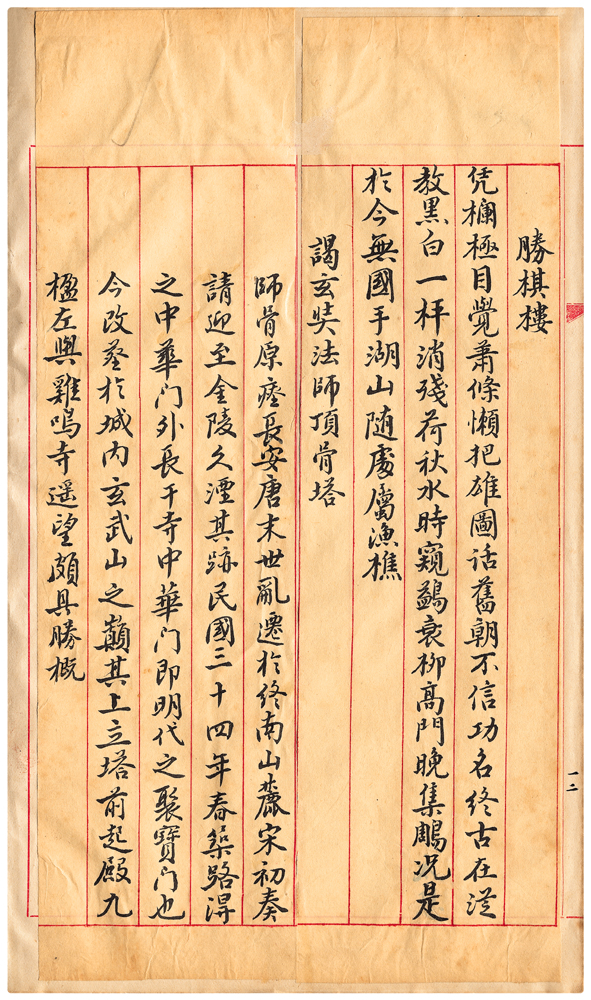 勝棋樓
凭欄極目覺蕭條懶把雄圖話舊朝不信功名終古在從
教黑白一枰消殘荷秋水時窺鷁衰柳高門晚集鵰况是
於今無國手湖山随處屬漁樵
謁玄奘法師頂骨塔
師骨原瘞長安唐末世亂遷於終南山麓宋初奏
請迎至金陵久湮其跡民國三十四年春築路得
之中華门外長干寺中華门即明代之聚寶门也
今改塟於城内玄武山之巔其上立塔前起殿九
楹左與雞鳴寺遥望頗具勝概
一二